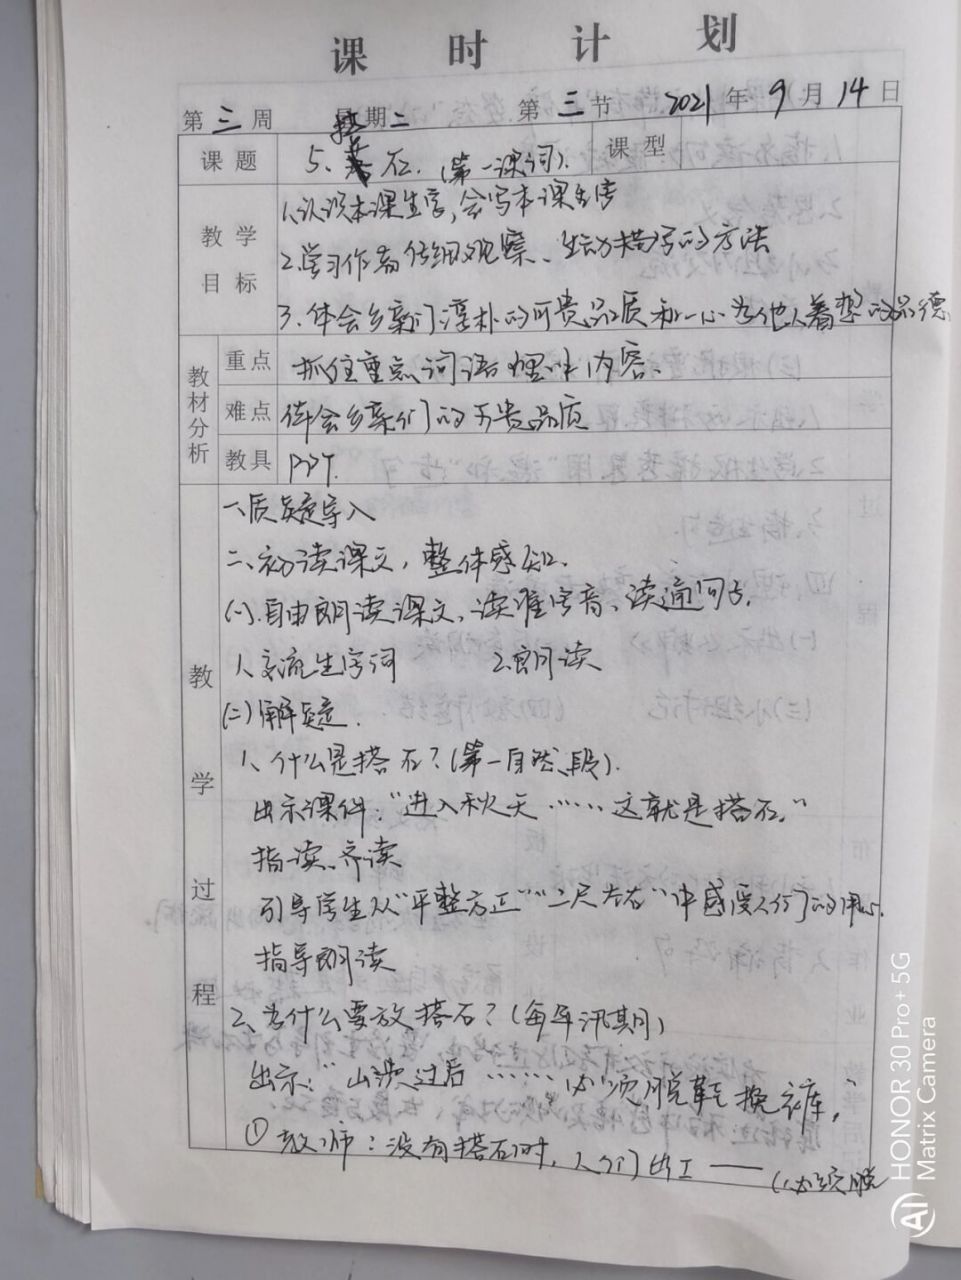 课时计划
第三周 星期二 第三节 2021年9月14日
课题 5、搭石.(第一课词). 课型
教学目标
1.认识本课生字,会写本课生字
2.学习作者仔细观察、生动描写的方法
3.体会乡亲们淳朴的可贵品质和一心为他人着想的品德
教材分析
重点 抓住重点词语理解内容.
难点 体会乡亲们的可贵品质
教具 PPT.
教学过程
一、质疑导入
二、初读课文,整体感知.
(一).自由朗读课文、读准字音、读通句子.
1、交流生字词 2.朗读
(二)解疑.
1、什么是搭石?(第一自然段).
出示课件:"进入秋天……这就是搭石."
指读、齐读
引导学生从"平整方正""二尺左右"中感受人们的用心.
指导朗读
2、为什么要放搭石?(每年汛期)
出示:"山洪过后……必须脱鞋挽裤"
①教师:没有搭石时,人们出工——(必须脱
HONOR 30 Pro+ 5G
AI Matrix Camera